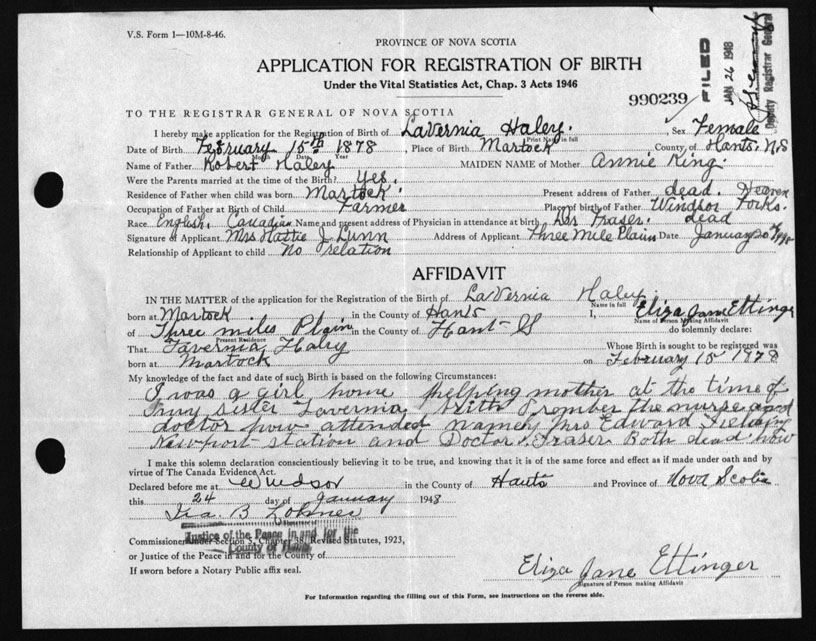 V.S. Form 1—10M-8-46.
PROVINCE OF NOVA SCOTIA
APPLICATION FOR REGISTRATION OF BIRTH
Under the Vital Statistics Act, Chap. 3 Acts 1946
990239
FILED
JAN 26 1948
Deputy Registrar General
TO THE REGISTRAR GENERAL OF NOVA SCOTIA
I hereby make application for the Registration of Birth of LaVernia Haley. Sex Female
Print Name in full
Date of Birth February 15th 1878, Place of Birth Martock County of Hants. N.S
Month Date Year
Name of Father Robert Haley MAIDEN NAME of Mother Annie King.
Were the Parents married at the time of Birth? Yes.
Residence of Father when child was born Martock. Present address of Father dead.
Occupation of Father at Birth of Child Farmer Place of birth of Father Windsor Forks.
Race English. Canadian Name and present address of Physician in attendance at birth Fraser. dead
Signature of Applicant Mrs Hattie J Dunn Address of Applicant Three Mile Plains Date January 20
Relationship of Applicant to child No relation
AFFIDAVIT
IN THE MATTER of the application for the Registration of the Birth of LaVernia Haley
Name in full
born at Martock in the County of Hants I, Eliza Jane Ettinger
Name of Person Making Affidavit
of Three miles Plain in the County of Hants do solemnly declare:
Present Residence
That Lavernia Haley Whose Birth is sought to be registered was
born at Martock on February 15 1878
My knowledge of the fact and date of such Birth is based on the following Circumstances:
I was a girl home helping mother at the time of
my sister Lavernia Birth I rember the nurse and
doctor how attended namely Mrs Edward
Newport station and Doctor Fraser Both dead now
I make this solemn declaration conscientiously believing it to be true, and knowing that it is of the same force and effect as if made under oath and by
virtue of The Canada Evidence Act.
Declared before me at Windsor in the County of Hants and Province of Nova Scotia
this 24 day of January 1948
Ira. B Lohnes
Justice of the Peace in and for the
County of Hants
Commissioner under Section 5, Chapter 38, Revised Statutes, 1923,
or Justice of the Peace in and for the County of
If sworn before a Notary Public affix seal.
Eliza Jane Ettinger
Signature of Person making Affidavit
For Information regarding the filling out of this Form, see instructions on the reverse side.